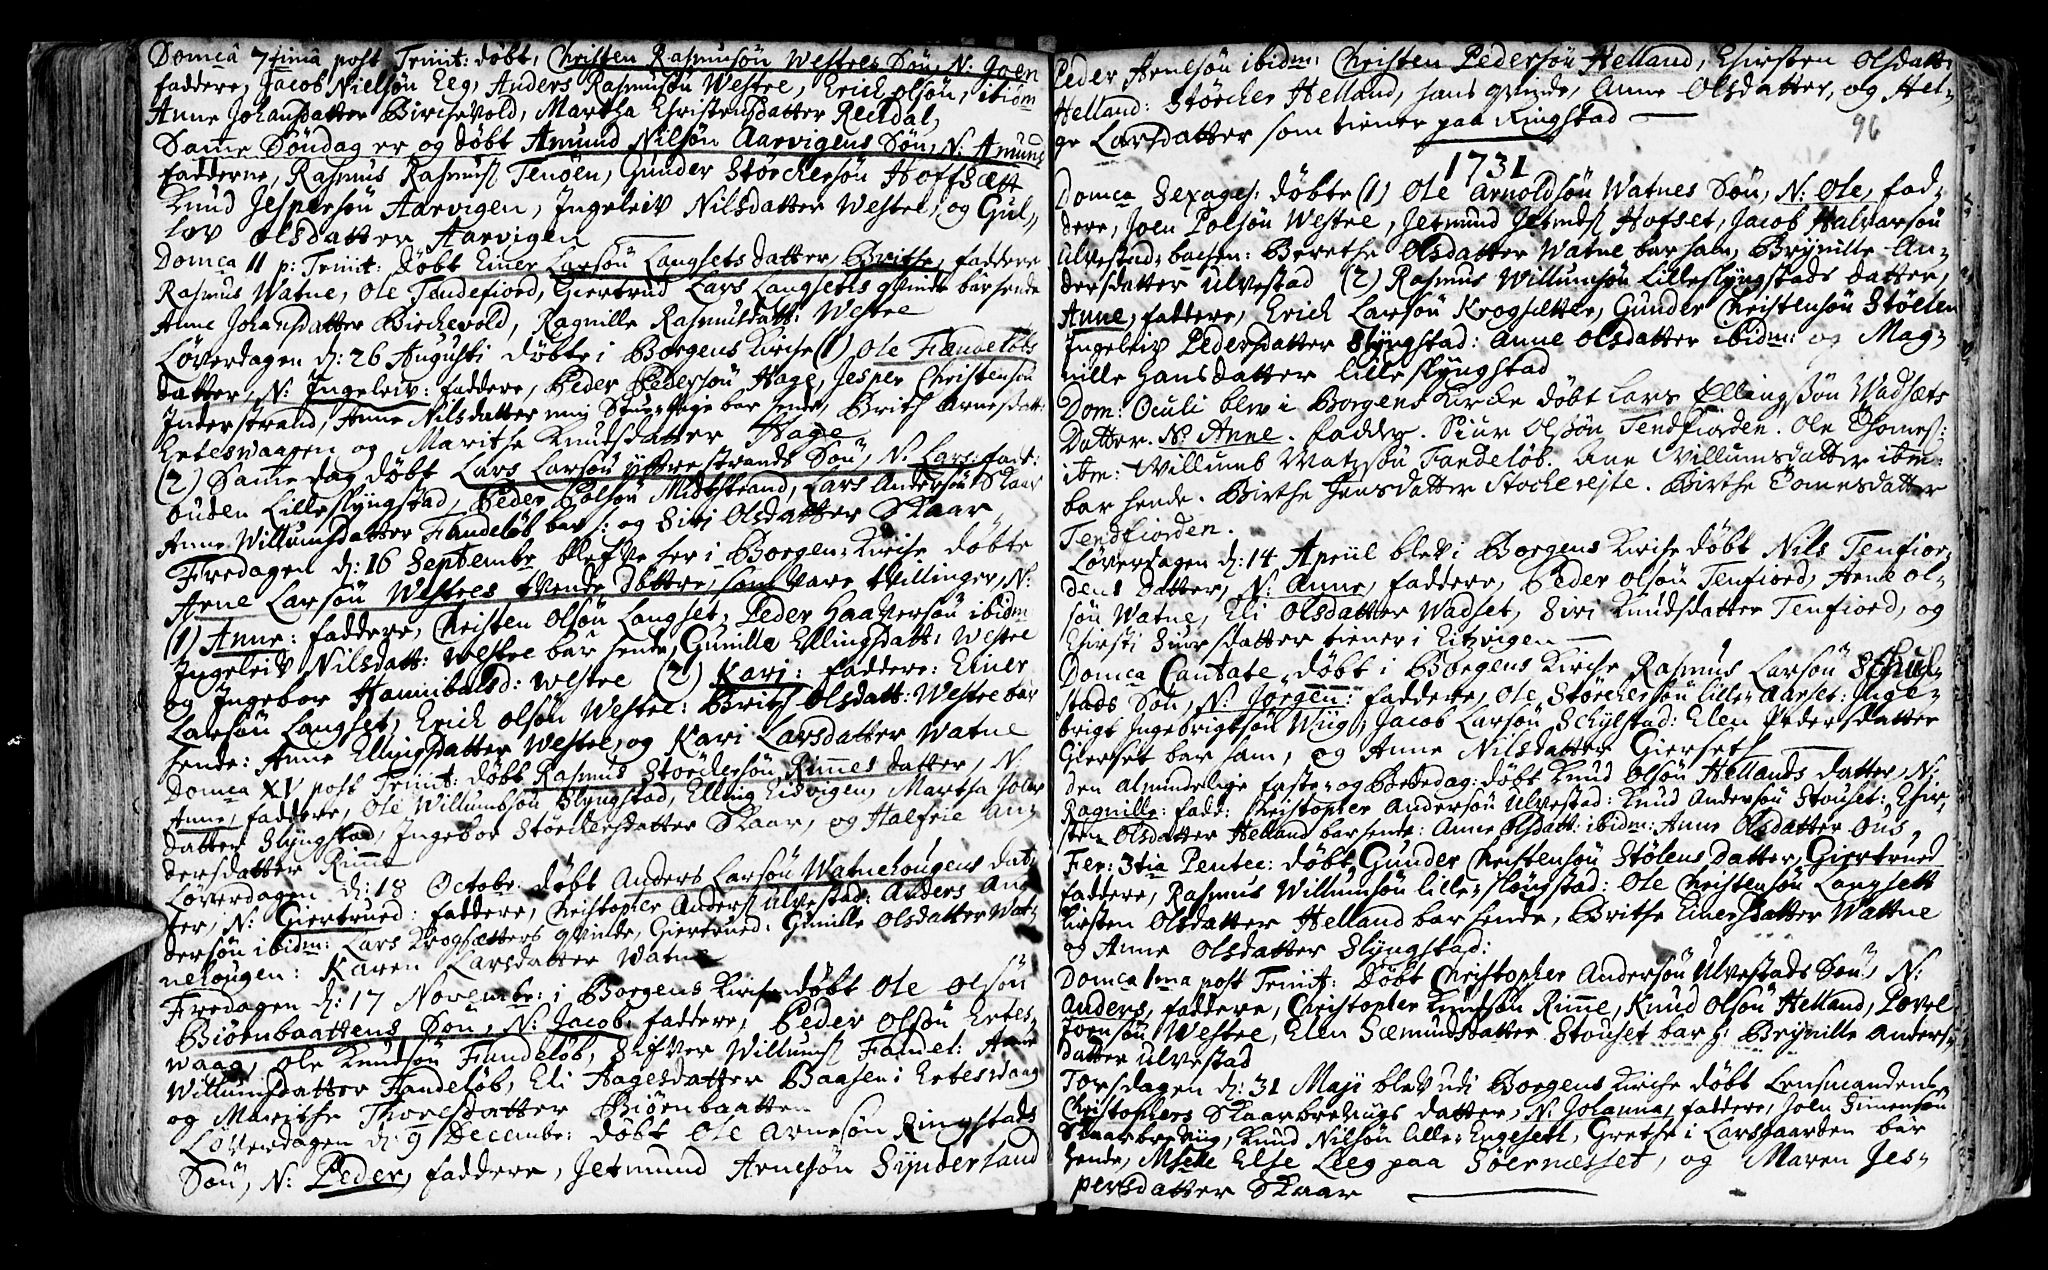 Domca 7tima post Trinit: döbt, Christen Rasmusön Westres Sön, N: Joen
faddere, Jacob Nielsön Eeg, Anders Rasmusön Westre, Erich Olsön, ibidm
Anne Johansdatter Birchevold, Martha Christensdatter Reitdal,
Same Söndag er og döbt Amund Nilsön Aarvigens Sön, N: Amund
fadderne, Rasmus Rasmus: Tenöen, Gunder Störchersön Hoffsætt
Knud Jespersön Aarvigen, Ingeleiv Nilsdatter Westre, og Gul,,
lov Olsdatter Aarvigen
Domca 11 p: Trinit: döbt Einer Larsön Langsets datter, Brithe, faddere
Rasmus Watne, Ole Tendefiord, Giertrud Lars Langsets qvinde bar hende
Anne Johansdatter Birchevold, Ragnille Rasmusdatt: Westre
Löverdagen d: 26 Augusti döbte i Borgens Kirche (1) Ole Fandelöbs
datter, N: Ingeleiv: faddere, Peder Pedersön Hage, Jesper Christensön
Inderstrand, Anne Nilsdatter min Stue-Pige bar hende, Brith Arnesdatt:
Ertesvaagen og Marithe Knudsdatter Hage
(2) Same dag döbt Lars Larsön Yttrestrands Sön, N: Lars: fadd:
ouden Lilleslyngstad, Peder Polsön Midtstrand, Lars Andersön Skaar
Anne Willumsdatter Fandelöb bar : og Siri Olsdatter Skaar
Fredagen d: 16 Septembr blefve her i Borgen: Kirche döbte
Arne Larsön Westres tvende döttre, som vare tvillinger, N:
(1) Anne: faddere, Christen Olsön Langset, Peder Haaversön ibidm
Ingeleiv Nilsdatt: Westre bar hende, Gunille Ellingsdatt: Westre
og Ingebor Hannibalsd: Westre (2) Kari: faddere: Einer
Larsön Langset, Erich Olsön Westre: Brith Olsdatt: Westre bar
hende: Anne Ellingsdatter Westre, og Kari Larsdatter Watne
Domca XV post Trinit: döbt Rasmus Störchersön Rimmes datter, N:
Anne, faddere, Ole Willumsön Slyngstad, Elling Eidvigen, Martha Joens
datter Slyngstad, Ingebor Störchersdatter Skaar, og Halfrie An,
dersdatter Rimme
Löverdagen d: 18 Octobr: döbt Anders Larsön Watnehougens dat,
ter, N: Giertrued: faddere, Christopher Anders: Ulvestad: Anders An,
dersön ibidm: Lars Krogsætters qvinde, Giertrued: Gunille Olsdatter Wat,
nehougen: Karen Larsdatter Watne
Fredagen d: 17 Novembr: i Borgens Kirche döbt Ole Olsön
Biörnbaattens Sön, N: Jacob: faddere, Peder Olsön Ertes,
waag, Ole Knudsön Fandelöb, Sifver Willums: Fandel: Anne
Willumsdatter Fandelöb, Eli Aagesdatter Baasen i Ertesvaag
og Marithe Thoresdatter Biörnbaatten
Löverdagen d: 9 Decembr: döbt Ole Arnesön Ringstads
Sön, N: Peder, faddere, Jetmund Arnesön Synderland
Peder Arnesön ibidm: Christen Pedersön Helland, Chirsten Olsdatt,
Helland: Störcher Helland, hans qvinde, Anne Olsdatter, og Hel,
ge Larsdatter som tiener paa Ringstad
96
1731
Domca Sexages: döbte (1) Ole Arnoldsön Watnes Sön, N: Ole, fad,
dere, Joen Polsön Westre, Jetmund Jetmds: Hofset, Jacob Halvarsön
Ulvestad-bachen: Berethe Olsdatter Watne bar ham, Brynille An,
dersdatter Ulvestad (2) Rasmus Willumsön Lilleslyngstads datter,
Anne, faddere, Erich Larsön Krogsætter, Gunder Christensön Stölen
Ingeleiv Pedersdatter Slyngstad: Anne Olsdatter ibidm: og Mag,
nille Hansdatter Lilleslyngstad
Dom: Oculi blev i Borgens Kirche döbt Lars Ellingsön Wadsæts
Datter. N: Anne. Faddr. Siur Olsön Tendfiorden. Ole Thomes:
ibm: Willumb Watzsön Fandelöb. Ane Willumsdatter ibm:
bar hende. Birthe Jensdatter Stochereite. Birthe Tomesdatter
Tendfiorden.
Löverdagen d: 14 Apriil blev i Borgens Kirche döbt Nils Tenfior,
dens datter, N: Anne, faddere, Peder Olsön Tenfiord, Arne Ol,
sön Watne, Eli Olsdatter Wadset, Siri Knudsdatter Tenfiord, og
Chirsti Siursdatter tiener i Eitzvigen
Domca Cantate, döbt i Borgens Kirche Rasmus Larsön Schiel,
stads Sön, N: Jörgen: faddere, Ole Störchersön Lille-Aarset: Inge,
brigt Ingebrigtsön Wiig, Jacob Larsön Schylstad: Elen Pedersdatter
Gierset bar ham, og Anne Nilsdatter Gierseth
den almindelige faste- og Bededag: döbt Knud Olsön Hellands datter, N:
Ragnille: fadd: Christopher Andersön Ulvestad: Knud Andersön Stouset: Chir,
sten Olsdatter Helland bar hende: Anne Olsdatt: ibidm: Anne Olsdatter Ous,
Fer: 3tia Pentec: döbt Gunder Christensön Stölens datter, Giertrued
faddere, Rasmus Willumsön Lille-Slöngstad: Ole Christensön Langsett
Kirsten Olsdatter Helland bar hende, Brithe Einersdatter Wattne
og Anne Olsdatter Slyngstad:
Domca 1ma post Trinit: döbt Christopher Andersön Ulvestads Sön, N:
Anders, faddere, Christopher Knudsön Rimme, Knud Olsön Helland, Povel
Joensön Westre, Elen Sæmundsdatter Stouset bar h: Brynille Anders,
datter Ulvestad
Torsdagen d: 31 Maji blev udi Borgens Kirche döbt Lensmandens
Christophers Skaarbrechigs datter, N: Johanna, faddere, Joen Simensön
Skaarbrechiig, Knud Nilsön Lille-Engeset, Grethe i Larsgaarden bar
hende, Mselle Else Leeg paa Söernæsset, og Maren Jes,
persdatter Skaar